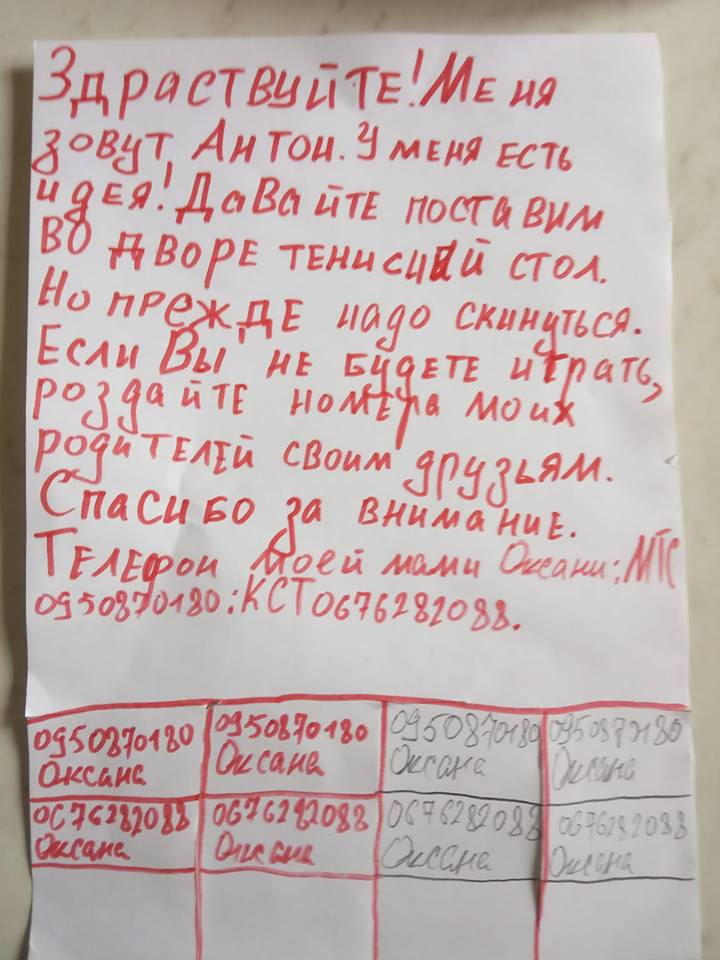 Здраствуйте! Меня
зовут Антон. У меня есть
идея! Давайте поставим
во дворе тенисций стол.
Но прежде надо скинуться.
Если Вы не будете играть,
роздайте номера моих
родителей своим друзьям.
Спасибо за внимание.
Телефон моей мами Оксани: МТС
0950870180: КСТ0676282088.
0950870180 0950870180 0950870180 0950870180
Оксана Оксана Оксана Оксана
0676282088 0676282088 0676282088 0676282088
Оксана Оксана Оксана Оксана